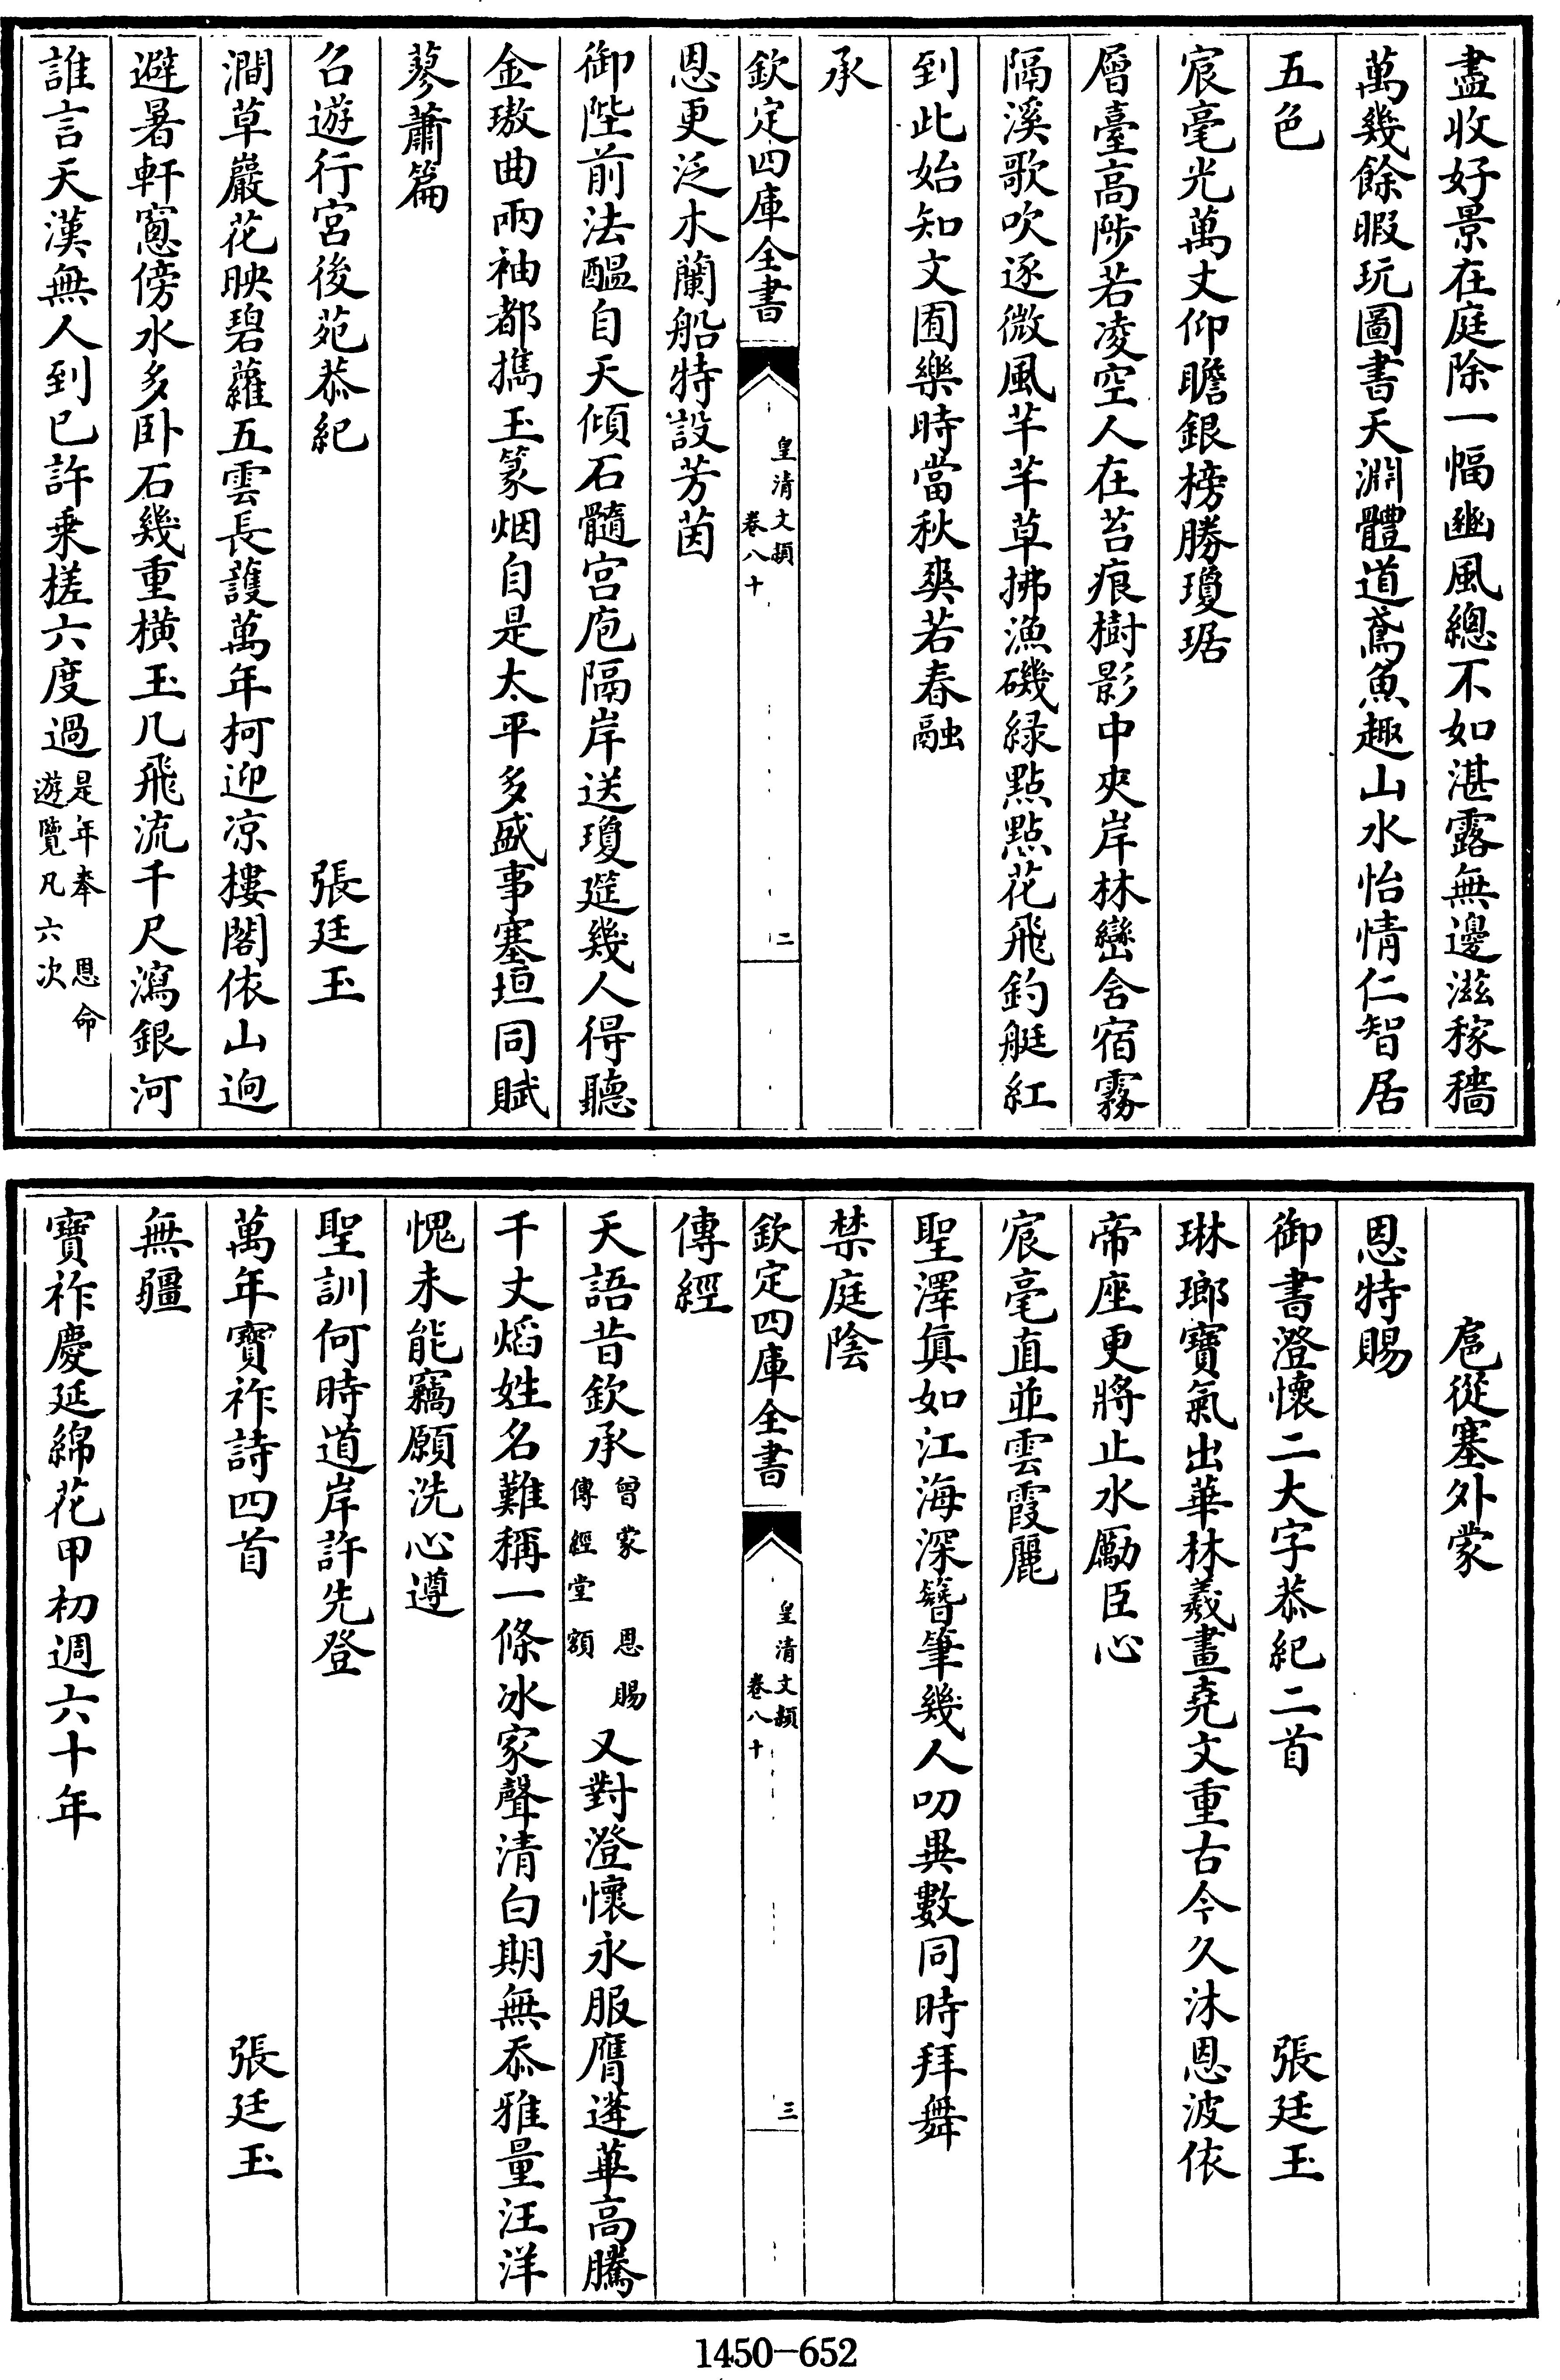 盡收好景在庭除一幅豳風總不如湛露無邊滋稼穡
萬幾餘暇玩圖書天淵體道鳶魚趣山水怡情仁智居
五色
宸毫光萬丈仰瞻銀榜勝瓊琚
層臺高陟若凌空人在苔痕樹影中夾岸林巒含宿霧
隔溪歌吹逐微風芊芊草拂漁磯綠點點花飛釣艇紅
到此始知文囿樂時當秋爽若春融
承
欽定四庫全書
皇清文穎
卷八十
二
恩更泛木蘭船特設芳茵
御陛前法醞自天傾石髓宮庖隔岸送瓊筵幾人得聽
金璈曲兩袖都擕玉篆烟自是太平多盛事塞垣同賦
蓼蕭篇
召遊行宮後苑恭紀
張廷玉
澗草巖花映碧蘿五雲長護萬年柯迎凉樓閣依山迥
避暑軒窻傍水多卧石幾重橫玉几飛流千尺瀉銀河
誰言天漢無人到已許乘槎六度過
是年奉 恩命
遊覽凡六次
扈從塞外蒙
恩特賜
御書澄懷二大字恭紀二首
張廷玉
琳瑯寶氣出華林羲畫堯文重古今久沐恩波依
帝座更將止水勵臣心
宸毫直並雲霞麗
聖澤真如江海深簪筆幾人叨異數同時拜舞
禁庭陰
欽定四庫全書
皇清文穎
卷八十
三
傳經
天語昔欽承
曾蒙 恩賜
傳經堂額
又對澄懷永服膺遴華高騰
千丈熖姓名難稱一條冰家聲清白期無忝雅量汪洋
愧未能竊願洗心遵
聖訓何時道岸許先登
萬年寶祚詩四首
張廷玉
無疆
寶祚慶延綿花甲初週六十年
1450-652